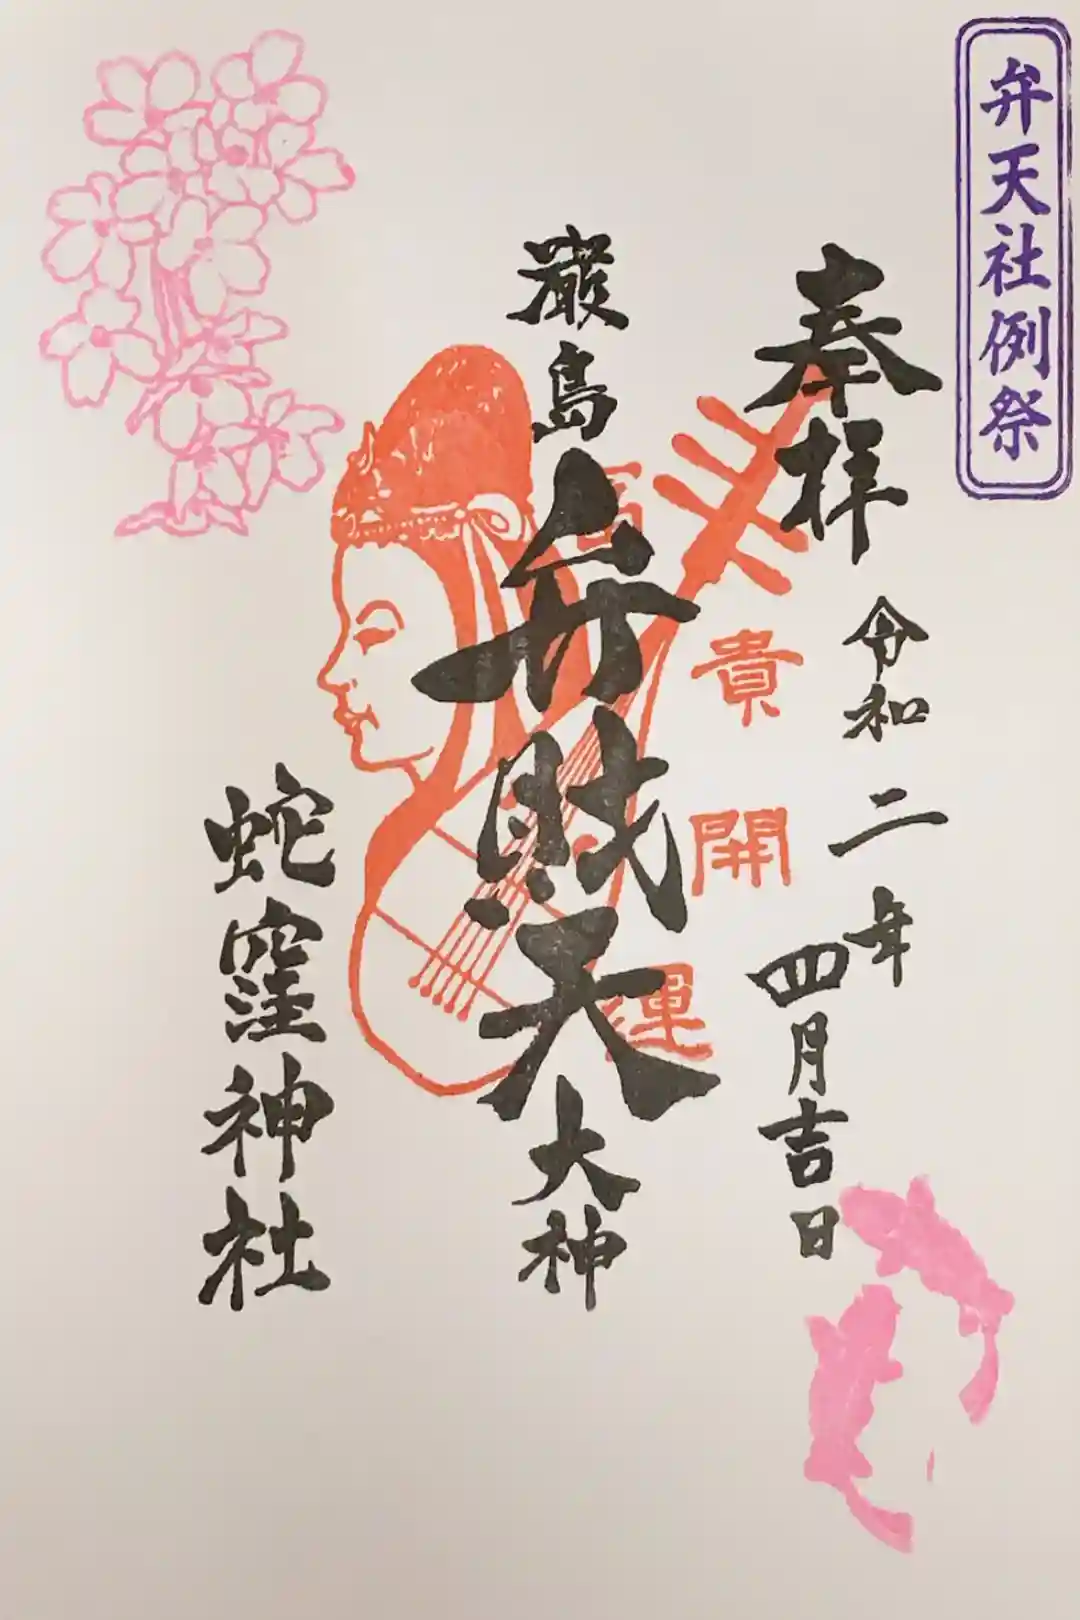 弁天社例祭
奉拝
令和二年
四月吉日
貴開運
厳島弁財天大神
蛇窪神社